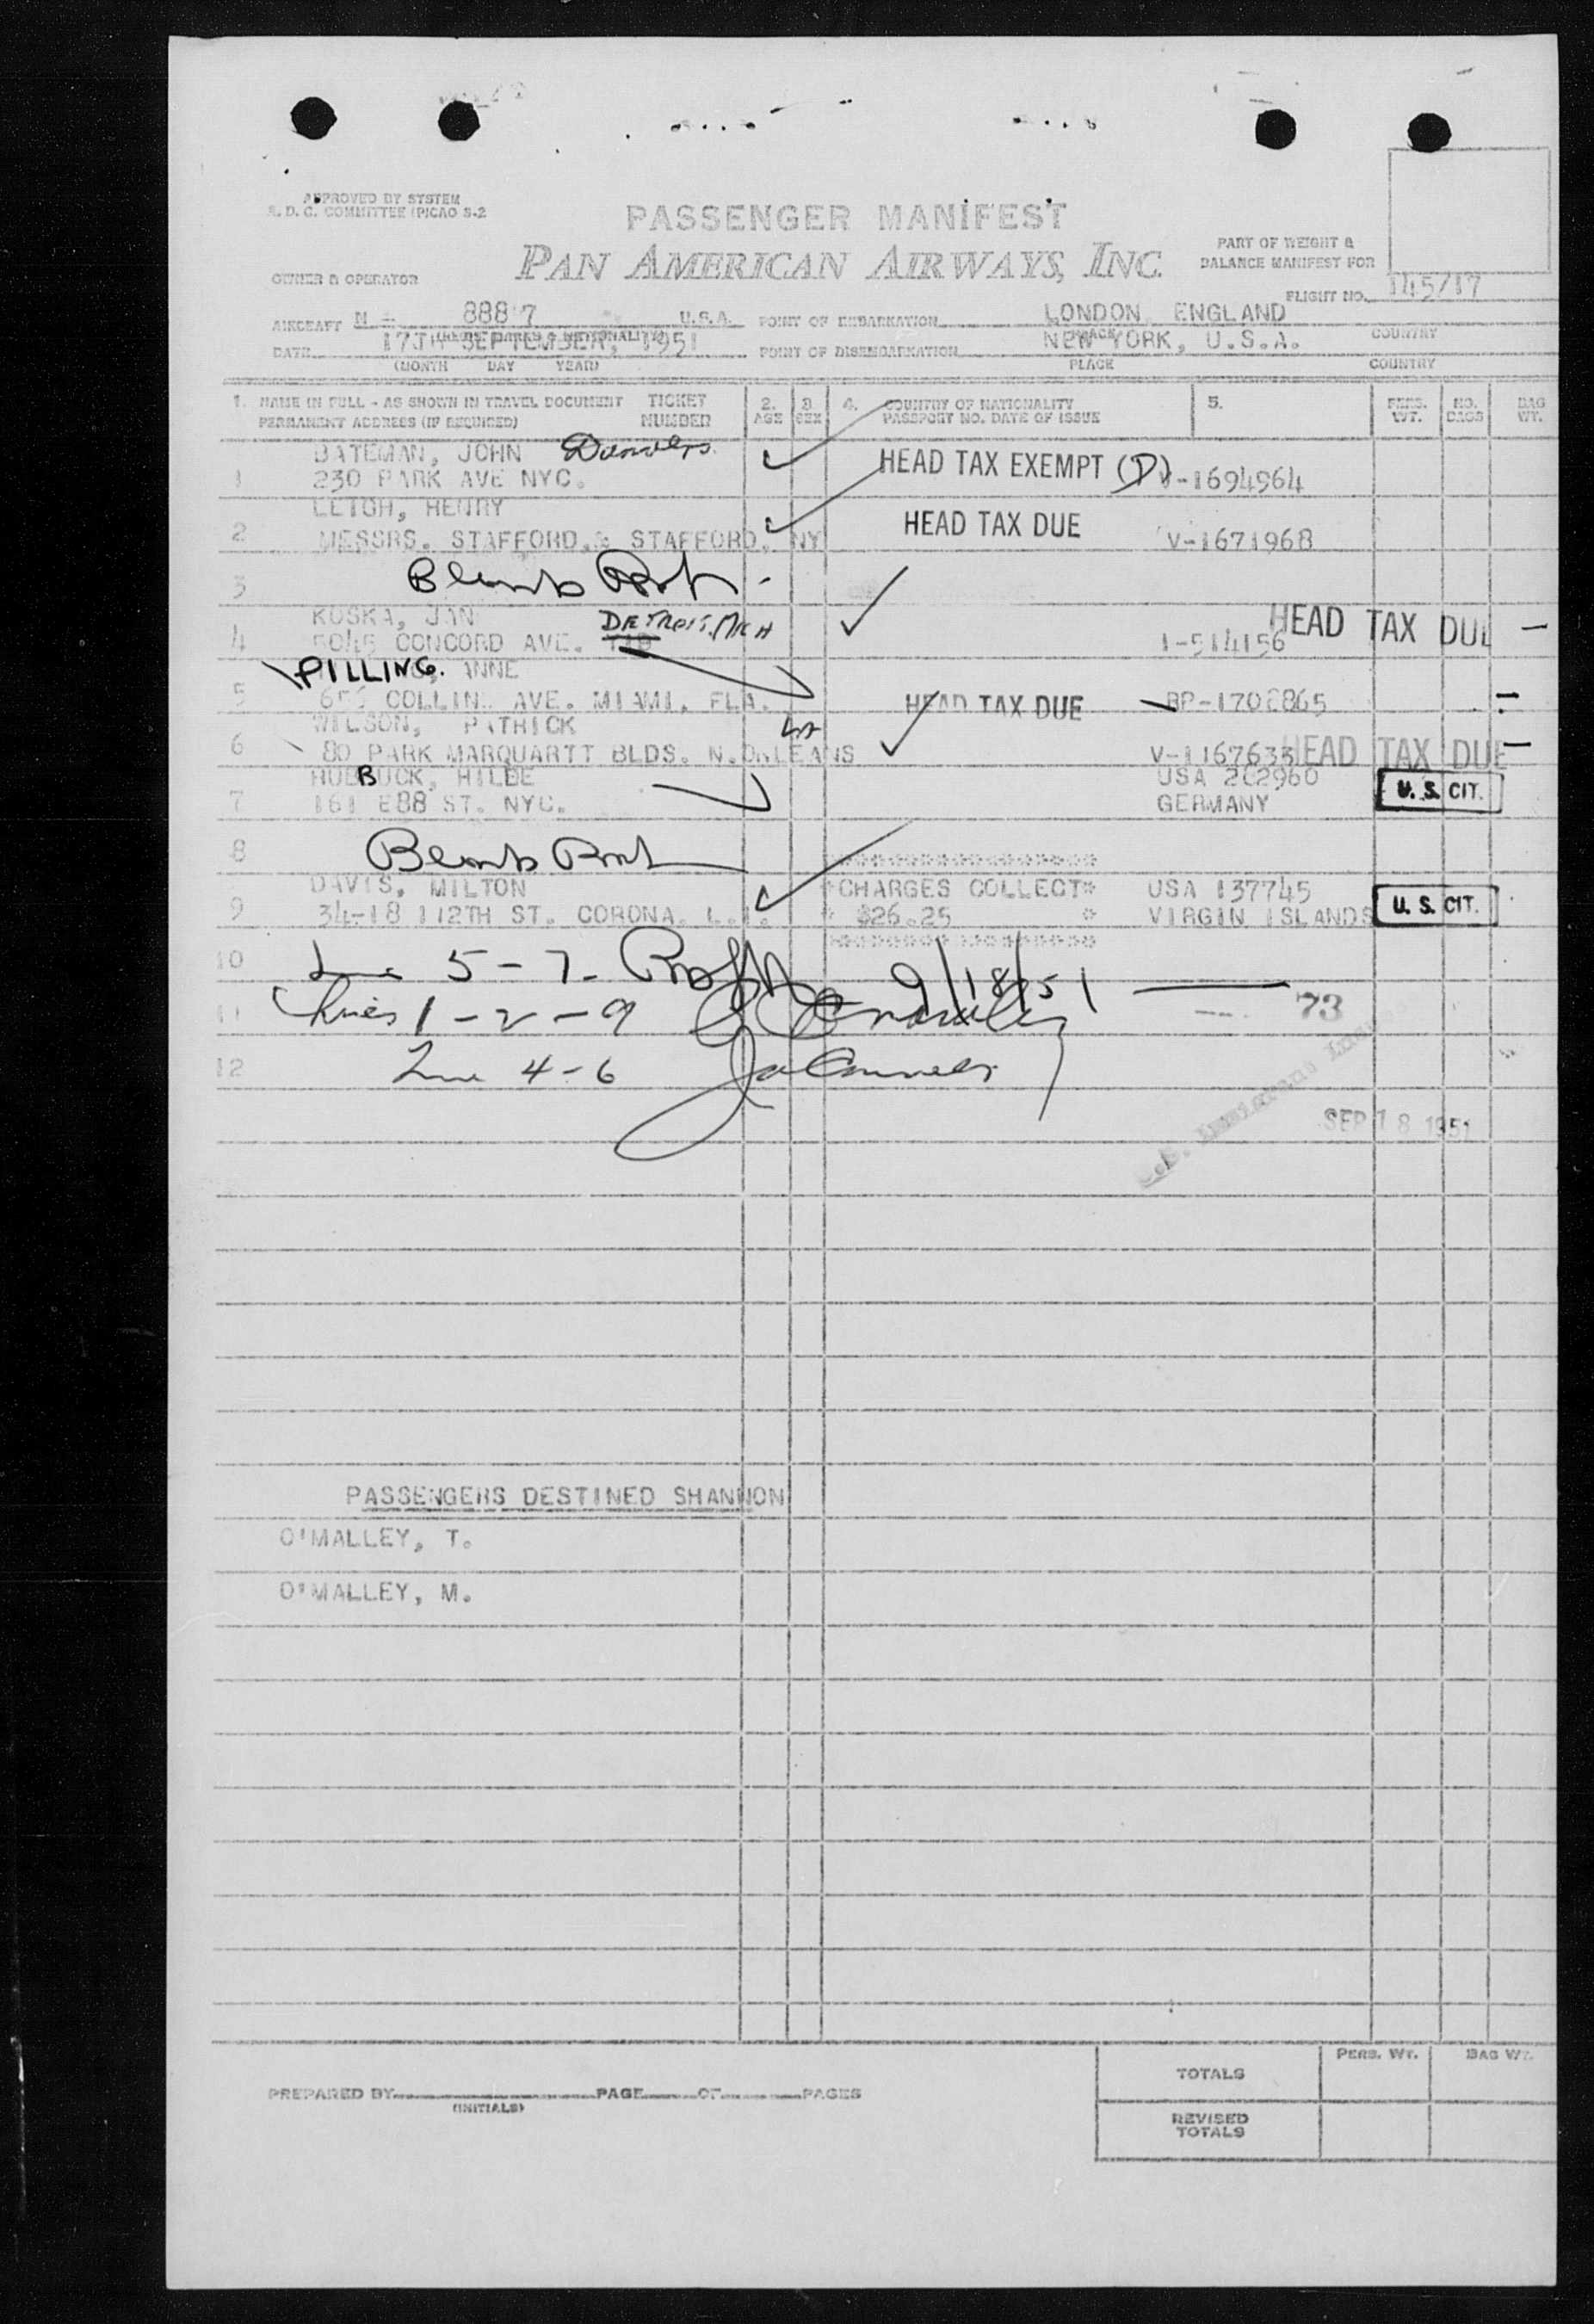 APPROVED BY SYSTEM
S. D. C. COMMITTEE (PICAO S-2
PASSENGER MANIFEST
PAN AMERICAN AIRWAYS, INC.
PART OF WEIGHT &
BALANCE MANIFEST FOR
OWNER & OPERATOR
FLIGHT NO. 145/17
AIRCRAFT N - 88817 U.S.A. POINT OF EMBARKATION LONDON ENGLAND
DATE 17TH SEPTEMBER, 1951 POINT OF DISEMBARKATION NEW YORK, U.S.A.
PLACE COUNTRY
(MONTH DAY YEAR) PLACE COUNTRY
1. NAME IN FULL - AS SHOWN IN TRAVEL DOCUMENT TICKET 2. 3. 4. COUNTRY OF NATIONALITY 5. PERS. NO. BAG
PERMANENT ADDRESS (IF REQUIRED) NUMBER AGE SEX PASSPORT NO. DATE OF ISSUE WT. BAGS WT.
BATEMAN, JOHN
1 230 PARK AVE NYC. HEAD TAX EXEMPT (D) V-1694964
LEIGH, HENRY
2 MESSRS. STAFFORD & STAFFORD. NY HEAD TAX DUE V-1671968
3
KOSKA, JAN DETROIT, MICH
4 5045 CONCORD AVE. I-514156 HEAD TAX DUE -
PILLING. ANNE
5 COLLIN AVE. MIAMI, FLA. HEAD TAX DUE BP-1702865
WILSON, PATRICK
6 80 PARK MARQUARTT BLDS. N.ORLEANS V-1167633 HEAD TAX DUE -
HUEBUCK, HILDE USA 262960
7 161 E88 ST. NYC. GERMANY U. S. CIT.
8
DAVIS, MILTON *CHARGES COLLECT* USA 137745
9 34-18 112TH ST. CORONA. L.I. * $26.25 * VIRGIN ISLANDS U. S. CIT.
10 Line 5-7- 9/18/51
11 Lines 1-2-9 73
12 Line 4-6
SEP 18 1951
PASSENGERS DESTINED SHANNON
O'MALLEY, T.
O'MALLEY, M.
PERS. WT. BAG WT.
TOTALS
PREPARED BY PAGE OF PAGES
(INITIALS)
REVISED
TOTALS